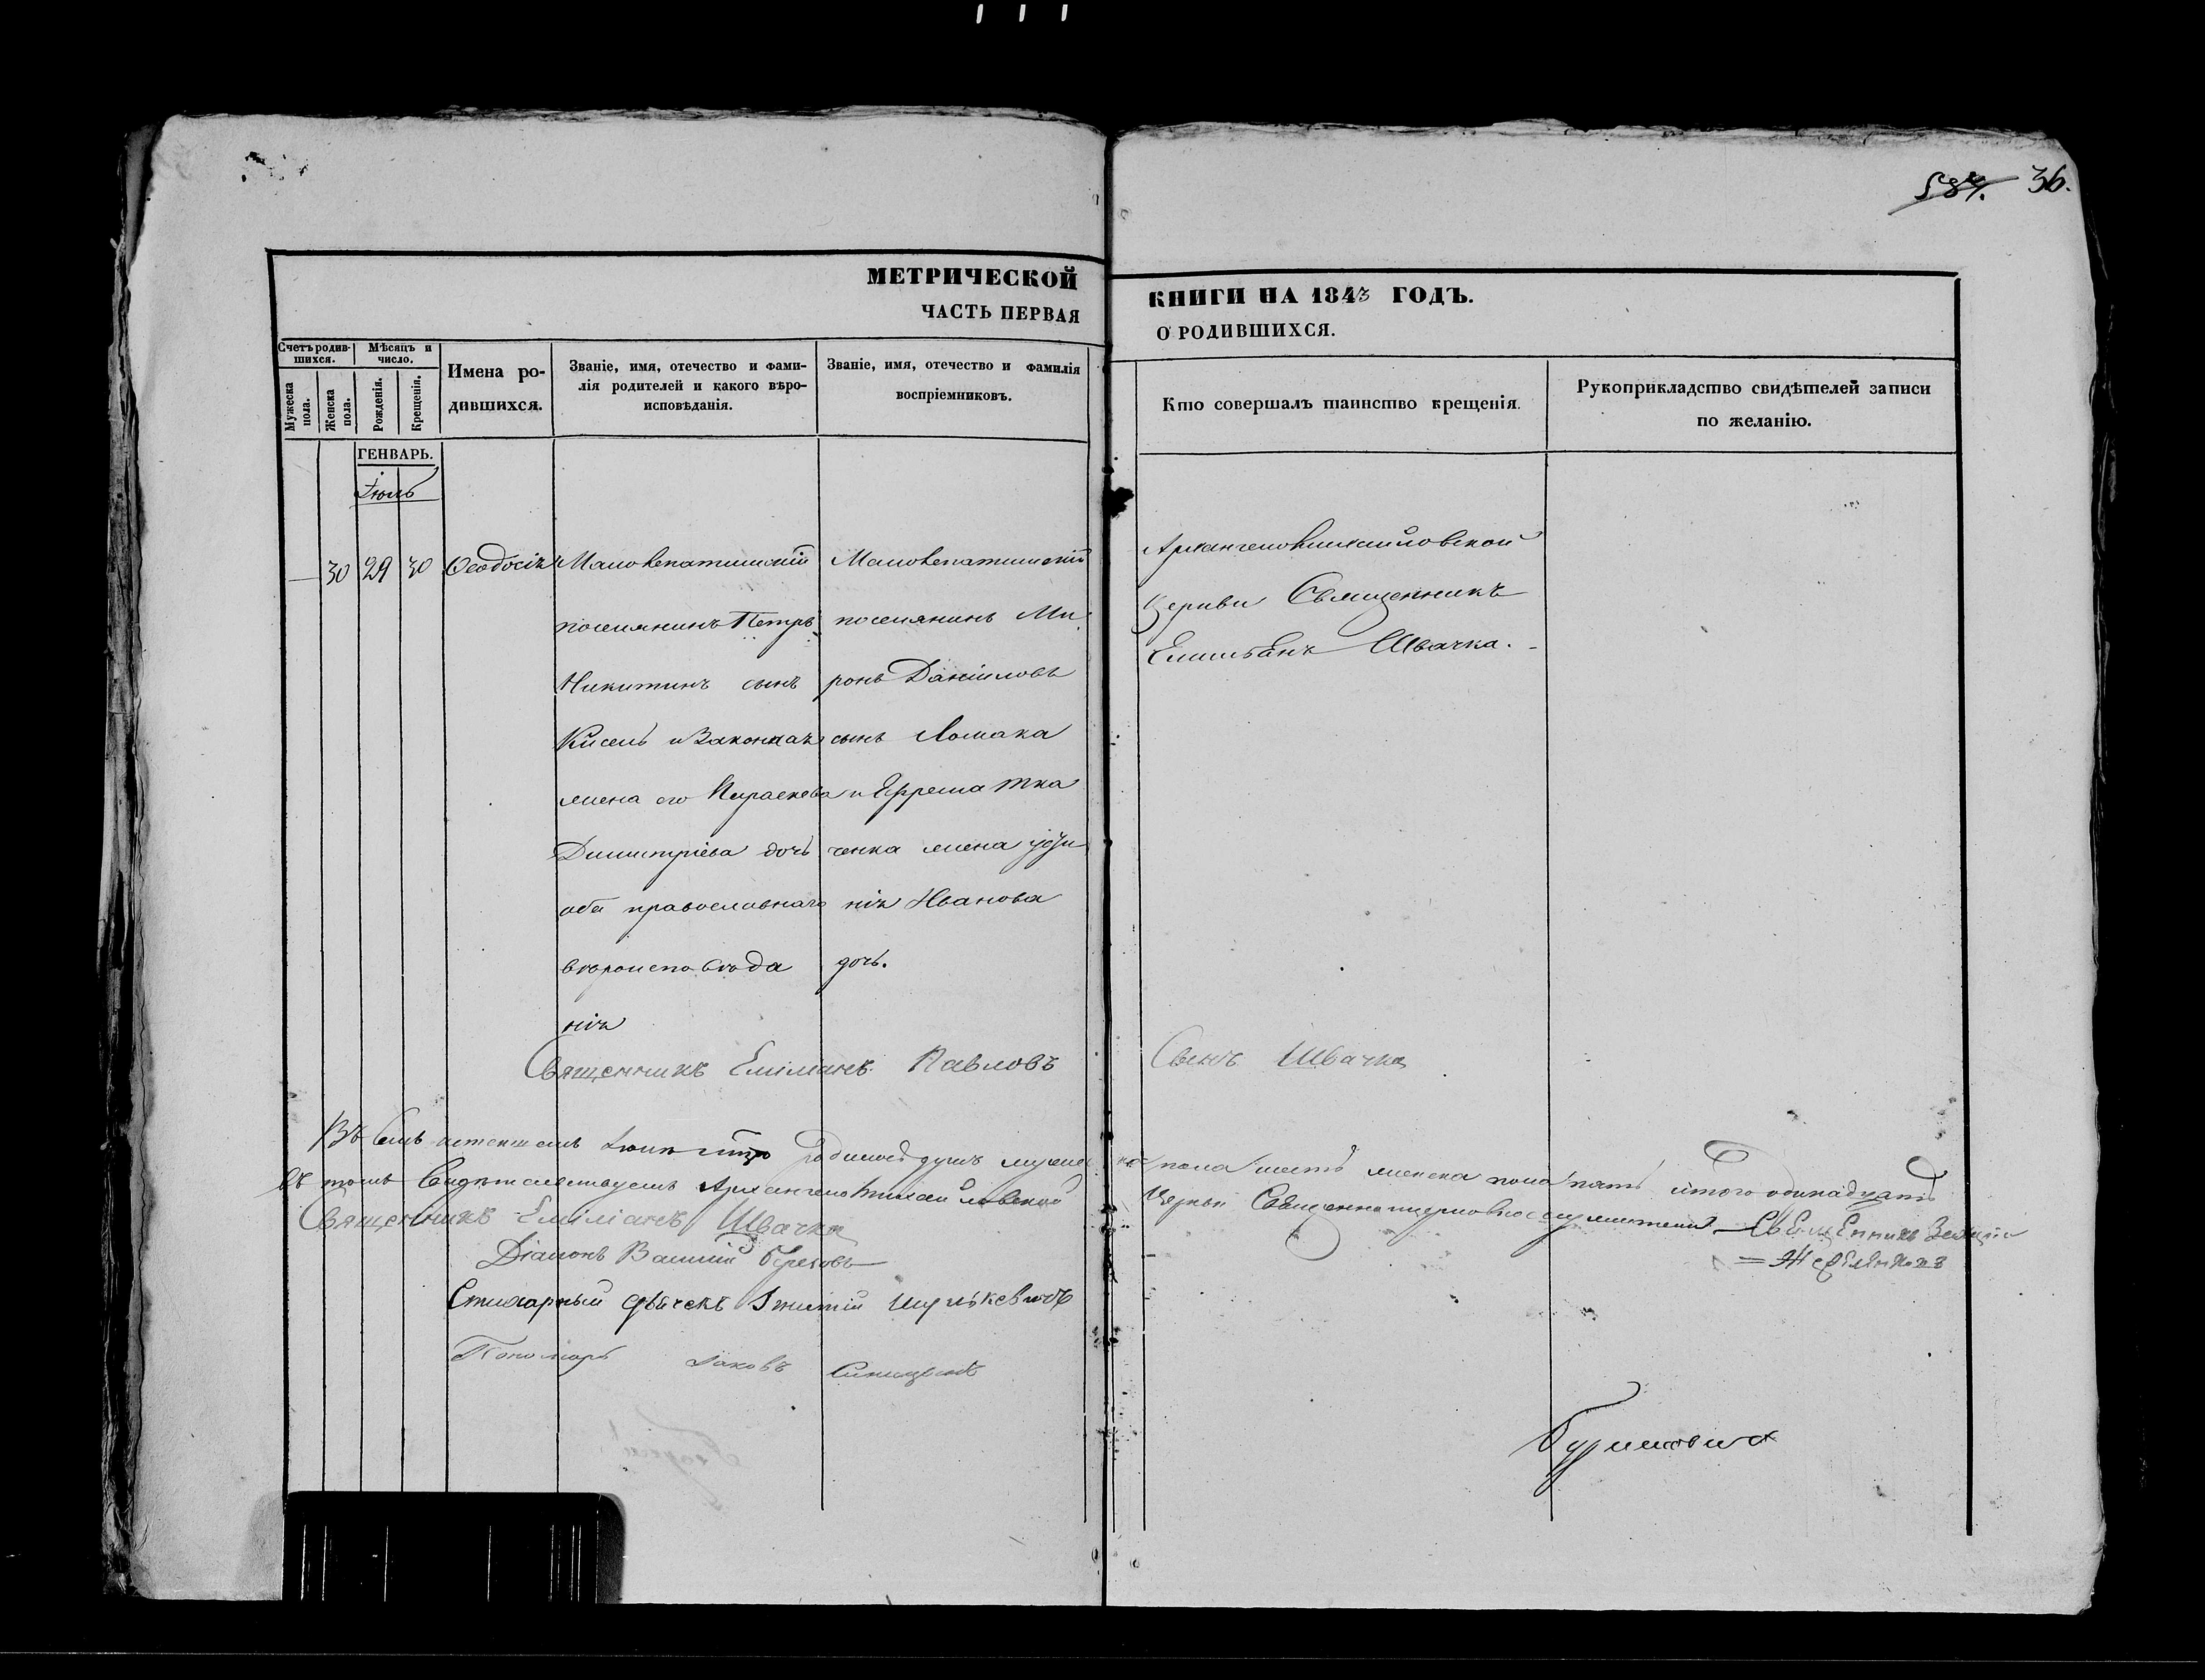 584. 36.
МЕТРИЧЕСКОЙ КНИГИ НА 1843 ГОДЪ.
ЧАСТЬ ПЕРВАЯ О РОДИВШИХСЯ.
Счетъ родившихся.
Мужеска пола.
Женска пола.
Мѣсяцъ и число.
Рожденія.
Крещенія.
Имена родившихся.
Званіе, имя, отечество и фамилія родителей и какого вѣроисповѣданія.
Званіе, имя, отечество и фамилія воспріемниковъ.
Кто совершалъ таинство крещенія.
Рукоприкладство свидѣтелей записи по желанію.
ГЕНВАРЬ.
Іюль
— 30 29 30 Ѳеодосія
поселянинъ Петръ
Никитинъ сынъ
Кисель и Законная
жена его Параскева
Димитріева дочь
оба православнаго
вѣроисповѣда
нія
поселянинъ Ми
ронъ Даніиловъ
сынъ Ломака
и Ефрема Тка
ченка жена Усти
нія Иванова
дочь.
Архангеломихайловской
Церкви Священникъ
Емиліанъ Швачка.
Священникъ Еміліанъ Павловъ Сынъ Швачка
Въ Семъ истекшемъ Іюль родилось душъ мужеска пола шесть женска пола пять итого одинадцать
въ томъ Свидѣтельствуемъ Архангеломихайловской Церкви Священноцерковнослужители
Священникъ Еміліанъ Швачка
Діаконъ Василій
Стихарный дьячекъ
Пономарь Іаковъ